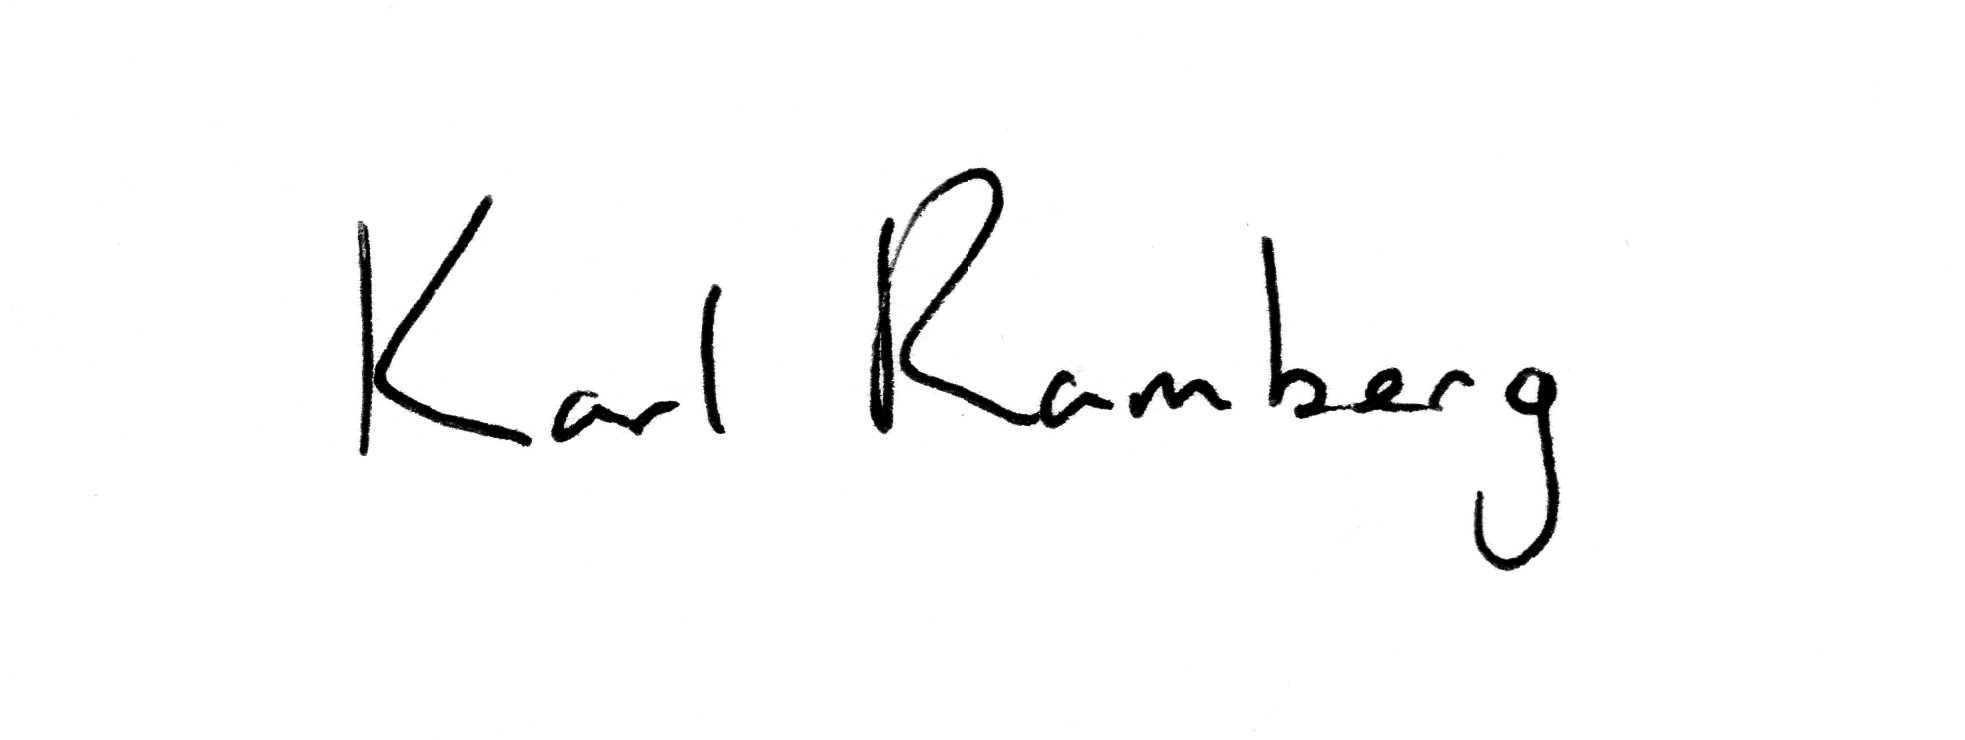 Karl Ramberg